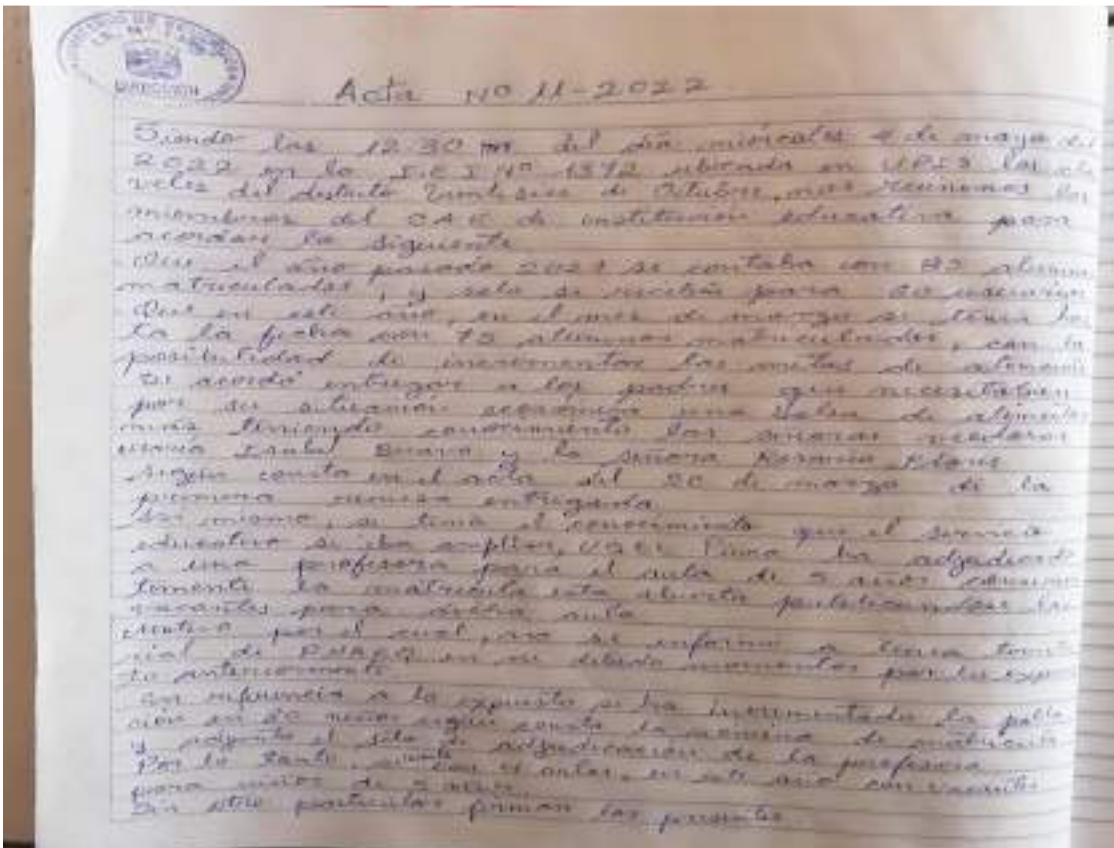 DIRECCION
Acta Nº 11-2022
Siendo las 12 30 del día miércoles 4 de mayo del
2022 en la I.E.I Nº 1372 ubicada en UPIS los
del distrito Veintiseis de Octubre, nos reunimos los
miembros del CAE de institucion educativa para
acordar lo siguiente
Que el año pasado 2021 se contaba con alumnos
matriculados, y solo se para 60 usuarios
Que en este año, en el mes de marzo se tenia has
ta la fecha con 73 alumnos matriculados, con la
posibilidad de incrementar las metas de atencion
Se acordó entregar a los padres que necesitaban
por su situación economica una bolsa de alimentos
mas teniendo conocimiento las señoras
Maria Isabel Bravo y la señora
según consta en el acta del 20 de marzo de la
primera remesa entregada
Asi mismo, se tenia el conocimiento que el servicio
educativo se iba ampliar, UGEL Piura ha adjudicado
a una profesora para el aula de 5 años
la matricula esta abierta
vacantes para dicha aula
motivo por el cual, no se informo a
de en su debido momento por lo exp
to anteriormente
En referencia a lo expuesto se ha incrementado la pobla
cion en niños según consta la nomina de matricula
y adjunto el de adjudicación de la profesora
Por lo tanto, en este año con vacantes
para niños de 5 años.
Sin otro particular firman los presentes